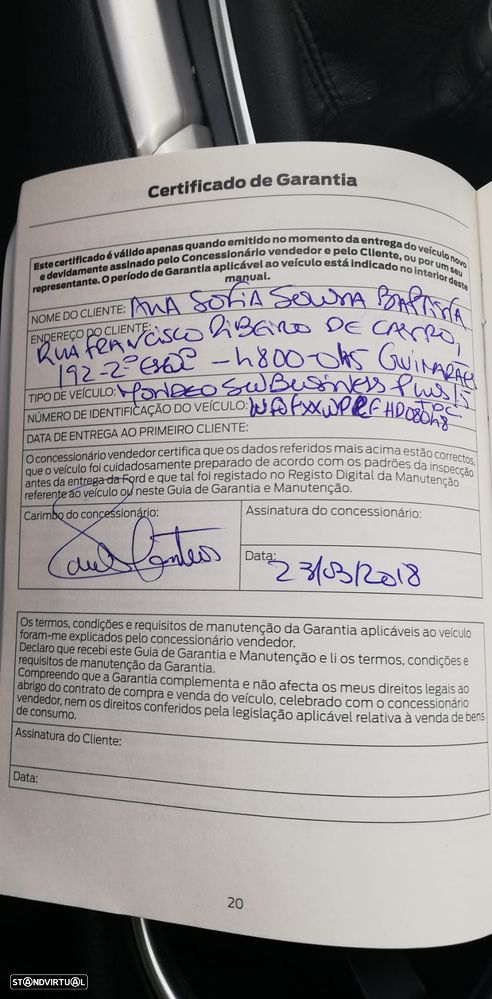 Certificado de Garantia
Este certificado é válido apenas quando emitido no momento da entrega do veículo novo
e devidamente assinado pelo Concessionário vendedor e pelo Cliente, ou por um seu
representante. O período de Garantia aplicável ao veículo está indicado no interior deste
manual.
NOME DO CLIENTE: ANA SOFIA SOUSA BAPTISTA
ENDEREÇO DO CLIENTE:
RUA FRANCISCO RIBEIRO DE CASTRO,
192-2º ESQº - 4800-045 GUIMARAES
TIPO DE VEÍCULO: MONDEO SW BUSINESS PLUS 1.5
NÚMERO DE IDENTIFICAÇÃO DO VEÍCULO:
DATA DE ENTREGA AO PRIMEIRO CLIENTE:
O concessionário vendedor certifica que os dados referidos mais acima estão correctos,
que o veículo foi cuidadosamente preparado de acordo com os padrões da inspecção
antes da entrega da Ford e que tal foi registado no Registo Digital da Manutenção
referente ao veículo ou neste Guia de Garantia e Manutenção.
Carimbo do concessionário:
Assinatura do concessionário:
Data: 23/03/2018
Os termos, condições e requisitos de manutenção da Garantia aplicáveis ao veículo
foram-me explicados pelo concessionário vendedor.
Declaro que recebi este Guia de Garantia e Manutenção e li os termos, condições e
requisitos de manutenção da Garantia.
Compreendo que a Garantia complementa e não afecta os meus direitos legais ao
abrigo do contrato de compra e venda do veículo, celebrado com o concessionário
vendedor, nem os direitos conferidos pela legislação aplicável relativa à venda de bens
de consumo.
Assinatura do Cliente:
Data:
20
STANDVIRTUAL